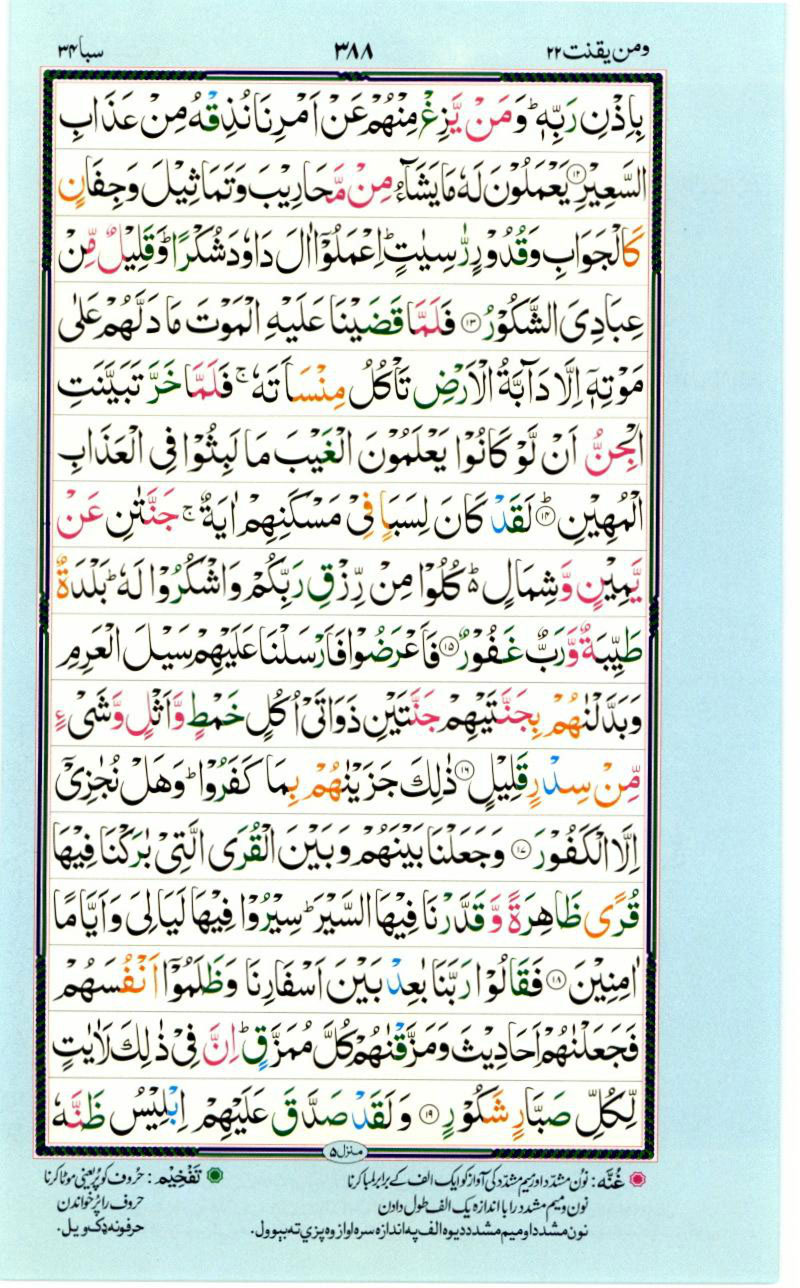 ومن یقنت ۲۲
۳۸۸
سبا ۳۴
بِاِذْنِ رَبِّهٖ ؕ وَمَنْ یَّزِغْ مِنْهُمْ عَنْ اَمْرِنَا نُذِقْهُ مِنْ عَذَابِ
السَّعِیْرِ ۱۲ یَعْمَلُوْنَ لَهٗ مَا یَشَآءُ مِنْ مَّحَارِیْبَ وَتَمَاثِیْلَ وَجِفَانٍ
كَالْجَوَابِ وَقُدُوْرٍ رّٰسِیٰتٍ ؕ اِعْمَلُوْۤا اٰلَ دَاوٗدَ شُكْرًا ؕ وَقَلِیْلٌ مِّنْ
عِبَادِیَ الشَّكُوْرُ ۱۳ فَلَمَّا قَضَیْنَا عَلَیْهِ الْمَوْتَ مَا دَلَّهُمْ عَلٰی
مَوْتِهٖۤ اِلَّا دَآبَّةُ الْاَرْضِ تَاْكُلُ مِنْسَاَتَهٗ ۚ فَلَمَّا خَرَّ تَبَیَّنَتِ
الْجِنُّ اَنْ لَّوْ كَانُوْا یَعْلَمُوْنَ الْغَیْبَ مَا لَبِثُوْا فِی الْعَذَابِ
الْمُهِیْنِ ؕ ۱۴ لَقَدْ كَانَ لِسَبَاٍ فِیْ مَسْكَنِهِمْ اٰیَةٌ ۚ جَنَّتٰنِ عَنْ
یَّمِیْنٍ وَّشِمَالٍ ؕ۬ كُلُوْا مِنْ رِّزْقِ رَبِّكُمْ وَاشْكُرُوْا لَهٗ ؕ بَلْدَةٌ
طَیِّبَةٌ وَّرَبٌّ غَفُوْرٌ ۱۵ فَاَعْرَضُوْا فَاَرْسَلْنَا عَلَیْهِمْ سَیْلَ الْعَرِمِ
وَبَدَّلْنٰهُمْ بِجَنَّتَیْهِمْ جَنَّتَیْنِ ذَوَاتَیْ اُكُلٍ خَمْطٍ وَّاَثْلٍ وَّشَیْءٍ
مِّنْ سِدْرٍ قَلِیْلٍ ۱۶ ذٰلِكَ جَزَیْنٰهُمْ بِمَا كَفَرُوْا ؕ وَهَلْ نُجٰزِیْۤ
اِلَّا الْكَفُوْرَ ۱۷ وَجَعَلْنَا بَیْنَهُمْ وَبَیْنَ الْقُرَی الَّتِیْ بٰرَكْنَا فِیْهَا
قُرًی ظَاهِرَةً وَّقَدَّرْنَا فِیْهَا السَّیْرَ ؕ سِیْرُوْا فِیْهَا لَیَالِیَ وَاَیَّامًا
اٰمِنِیْنَ ۱۸ فَقَالُوْا رَبَّنَا بٰعِدْ بَیْنَ اَسْفَارِنَا وَظَلَمُوْۤا اَنْفُسَهُمْ
فَجَعَلْنٰهُمْ اَحَادِیْثَ وَمَزَّقْنٰهُمْ كُلَّ مُمَزَّقٍ ؕ اِنَّ فِیْ ذٰلِكَ لَاٰیٰتٍ
لِّكُلِّ صَبَّارٍ شَكُوْرٍ ۱۹ وَلَقَدْ صَدَّقَ عَلَیْهِمْ اِبْلِیْسُ ظَنَّهٗ
منزل ۵
غُنَّه: نون مشدّد اور میم مشدّد کی آواز کو ایک الف کے برابر لمبا کرنا
نون و میم مشدد را با اندازه یک الف طول دادن
نون مشدد او میم مشدد دیوه الف په اندازه سره اواز وه پزي ته بېوول.
تَفْخِیْم: حُروف کو پُر یعنی موٹا کرنا
حروف را پُر خواندن
حرفونه ډک ویل.